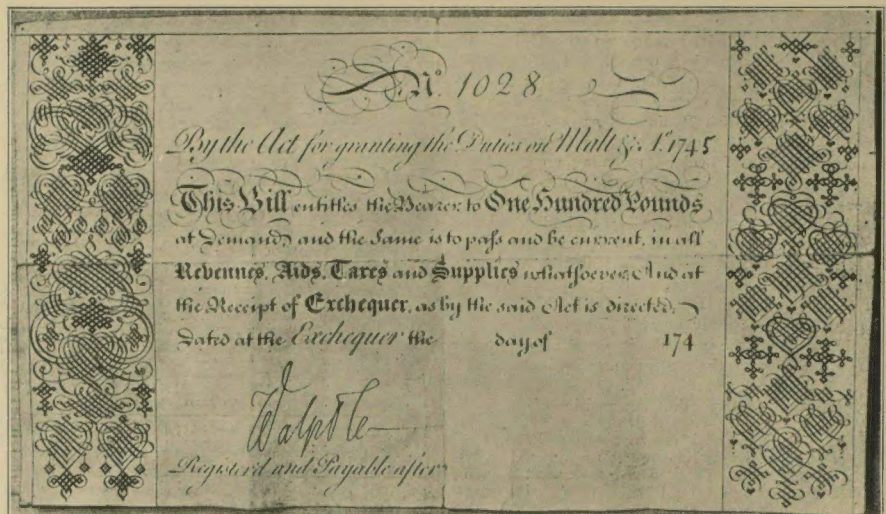 No. 1028
By the Act for granting the Duties on Malt &c. Ao. 1745
This Bill entitles the Bearer to One Hundred Pounds
at Demand, and the Same is to pass and be current, in all
Revennes, Aids, Taxes and Supplies whatsoever, And at
the Receipt of Exchequer, as by the said Act is directed,
Dated at the Exchequer the day of 174
Walpole
Registerd and Payable after